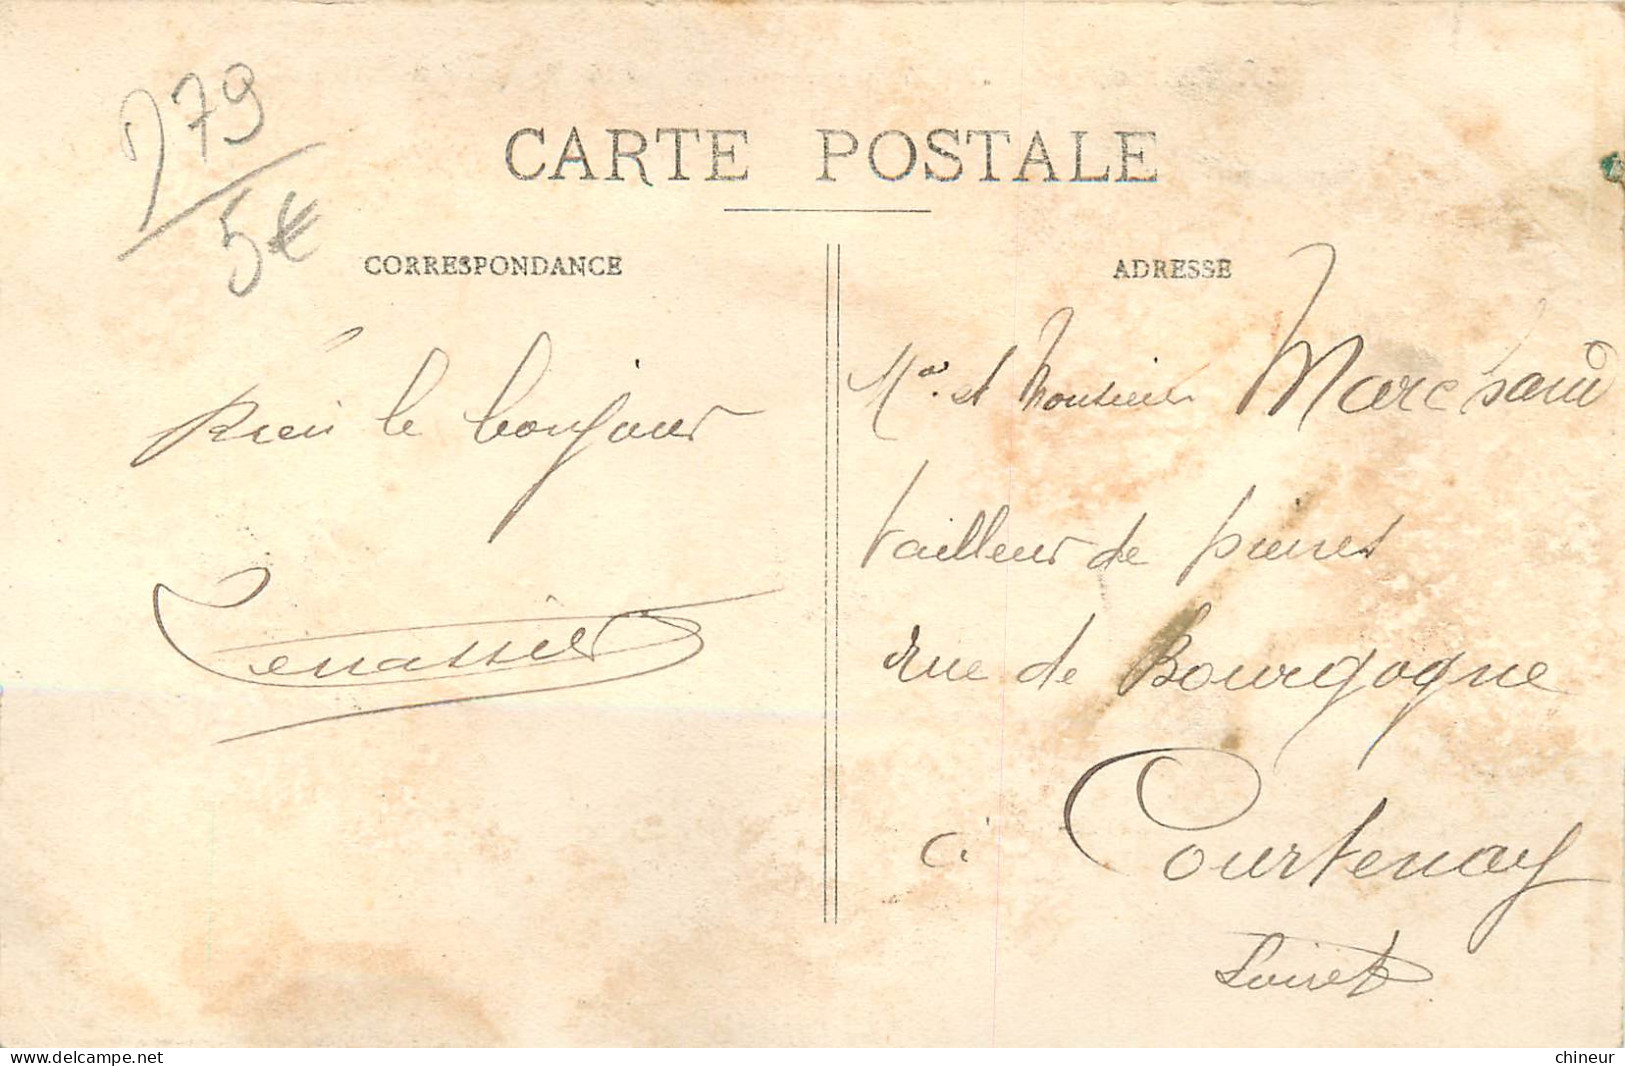 D79
5€
CARTE POSTALE
CORRESPONDANCE
ADRESSE
Bien le bonjour
Me et Monsieur Marchand
tailleur de pierres
rue de Bourgogne
à Courtenay
Loiret
www.delcampe.net
chineur